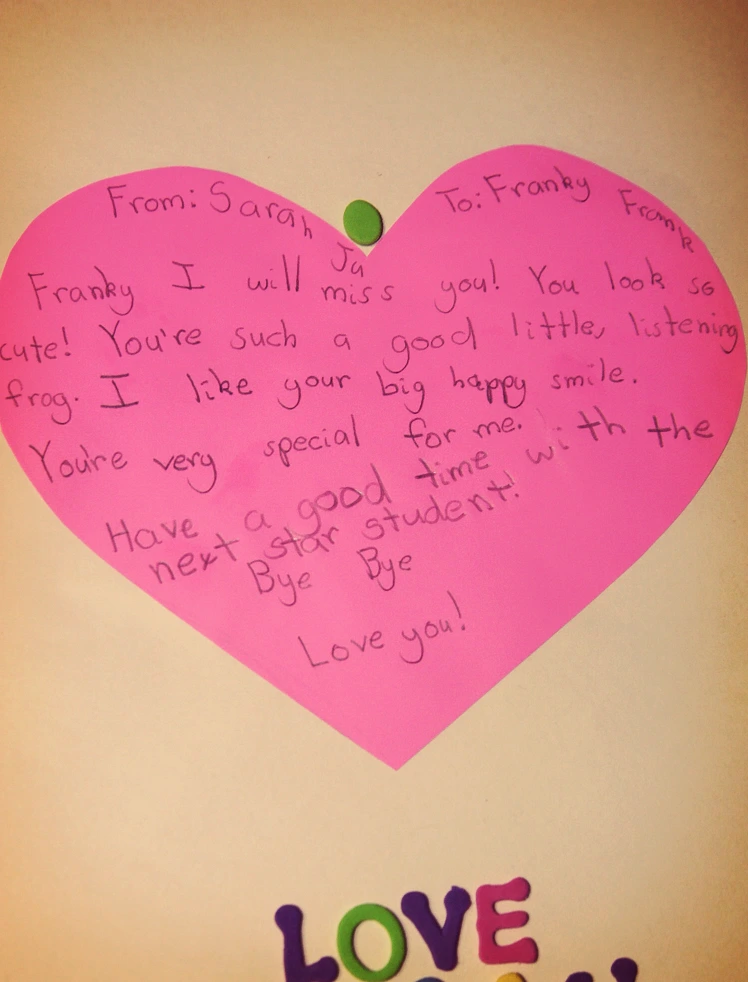 From: Sarah Ja
To: Franky Frank
Franky I will miss you! You look so
cute! You're such a good little, listening
frog. I like your big happy smile.
You're very special for me.
Have a good time with the
next star student!
Bye Bye
Love you!
LOVE